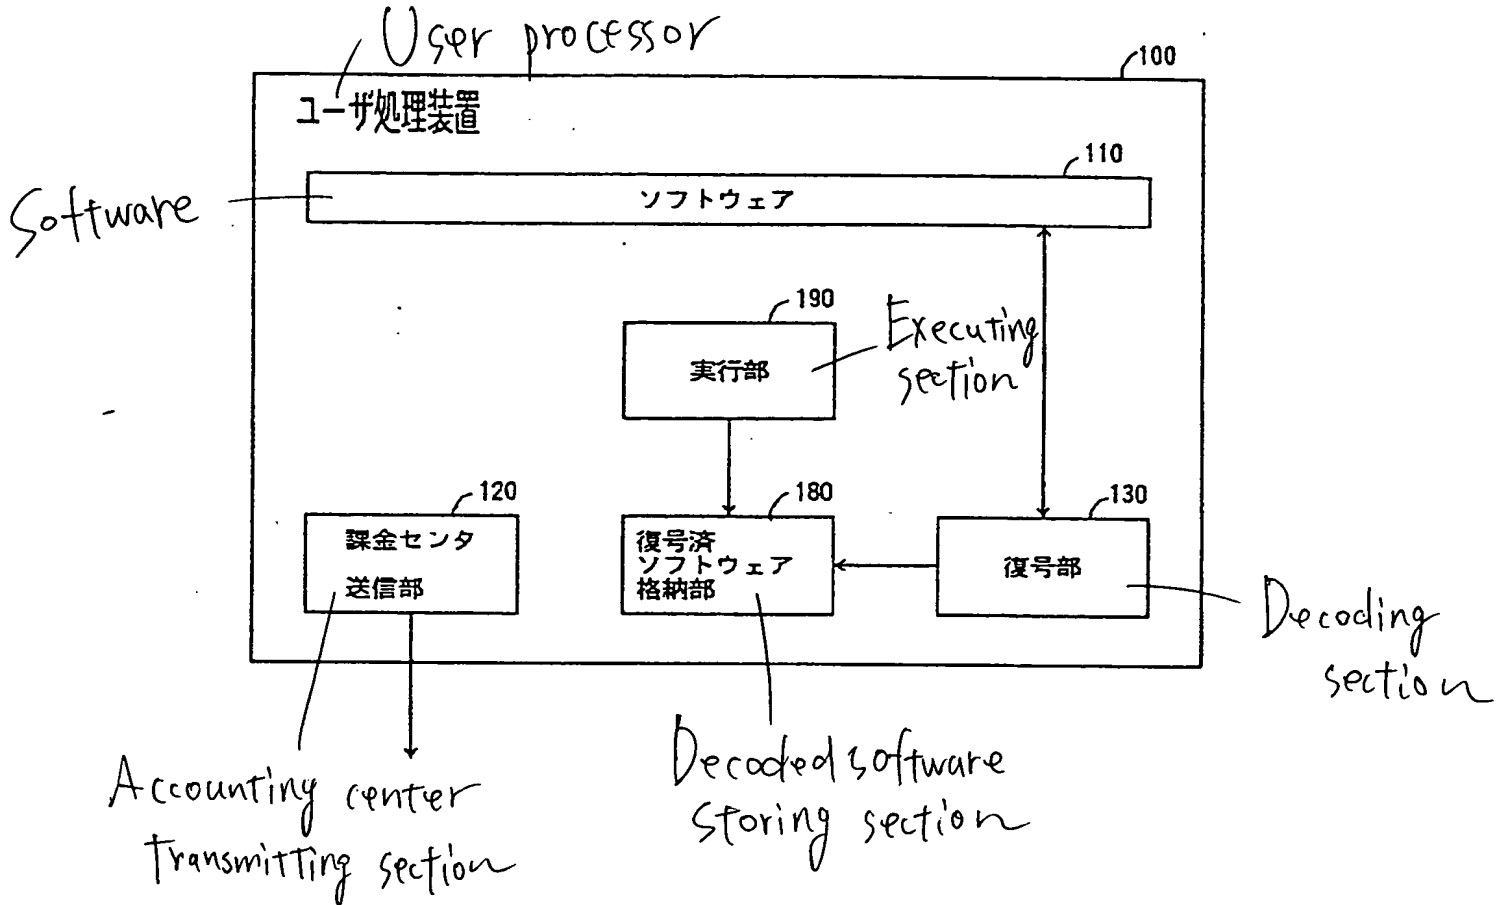 User processor
100
ユーザ処理装置
110
Software
ソフトウェア
190
Executing
section
実行部
120
180
130
課金センタ
送信部
復号済
ソフトウェア
格納部
復号部
Decoding
section
Accounting center
transmitting section
Decoded software
storing section